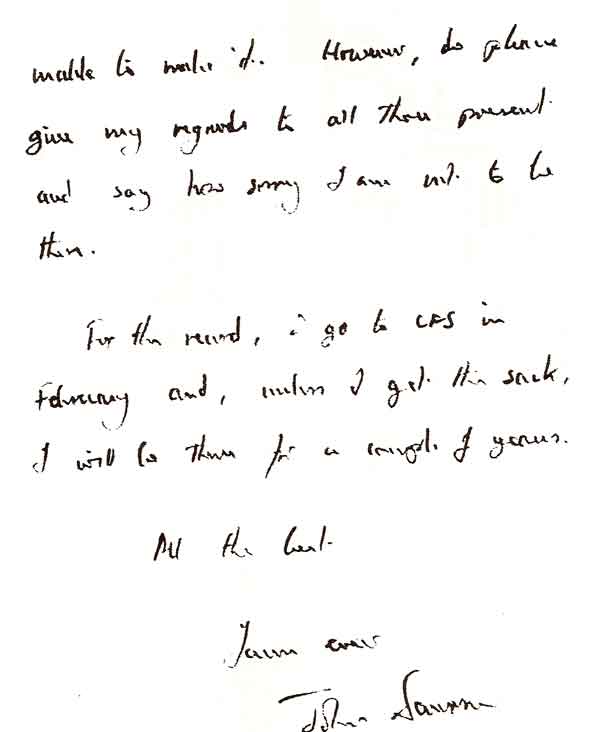 unable to make it. However, do please
give my regards to all those present
and say how sorry I am not to be
there.
For the record, I go to CFS in
February and, unless I get the sack,
I will be there for a couple of years.
All the best.
Yours ever
John